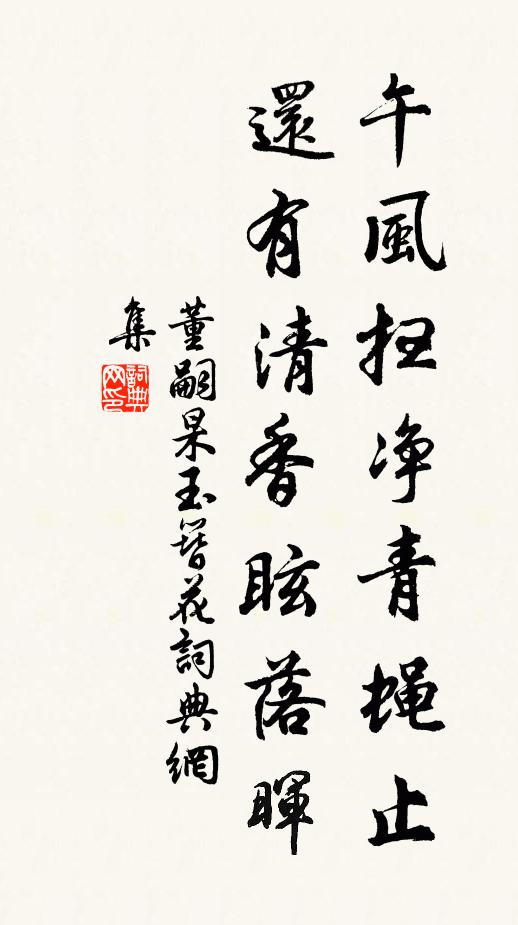 午風扫净青蝇止
還有清香眩落暉
董嗣杲玉簪花詞典網
集
詞典
网印